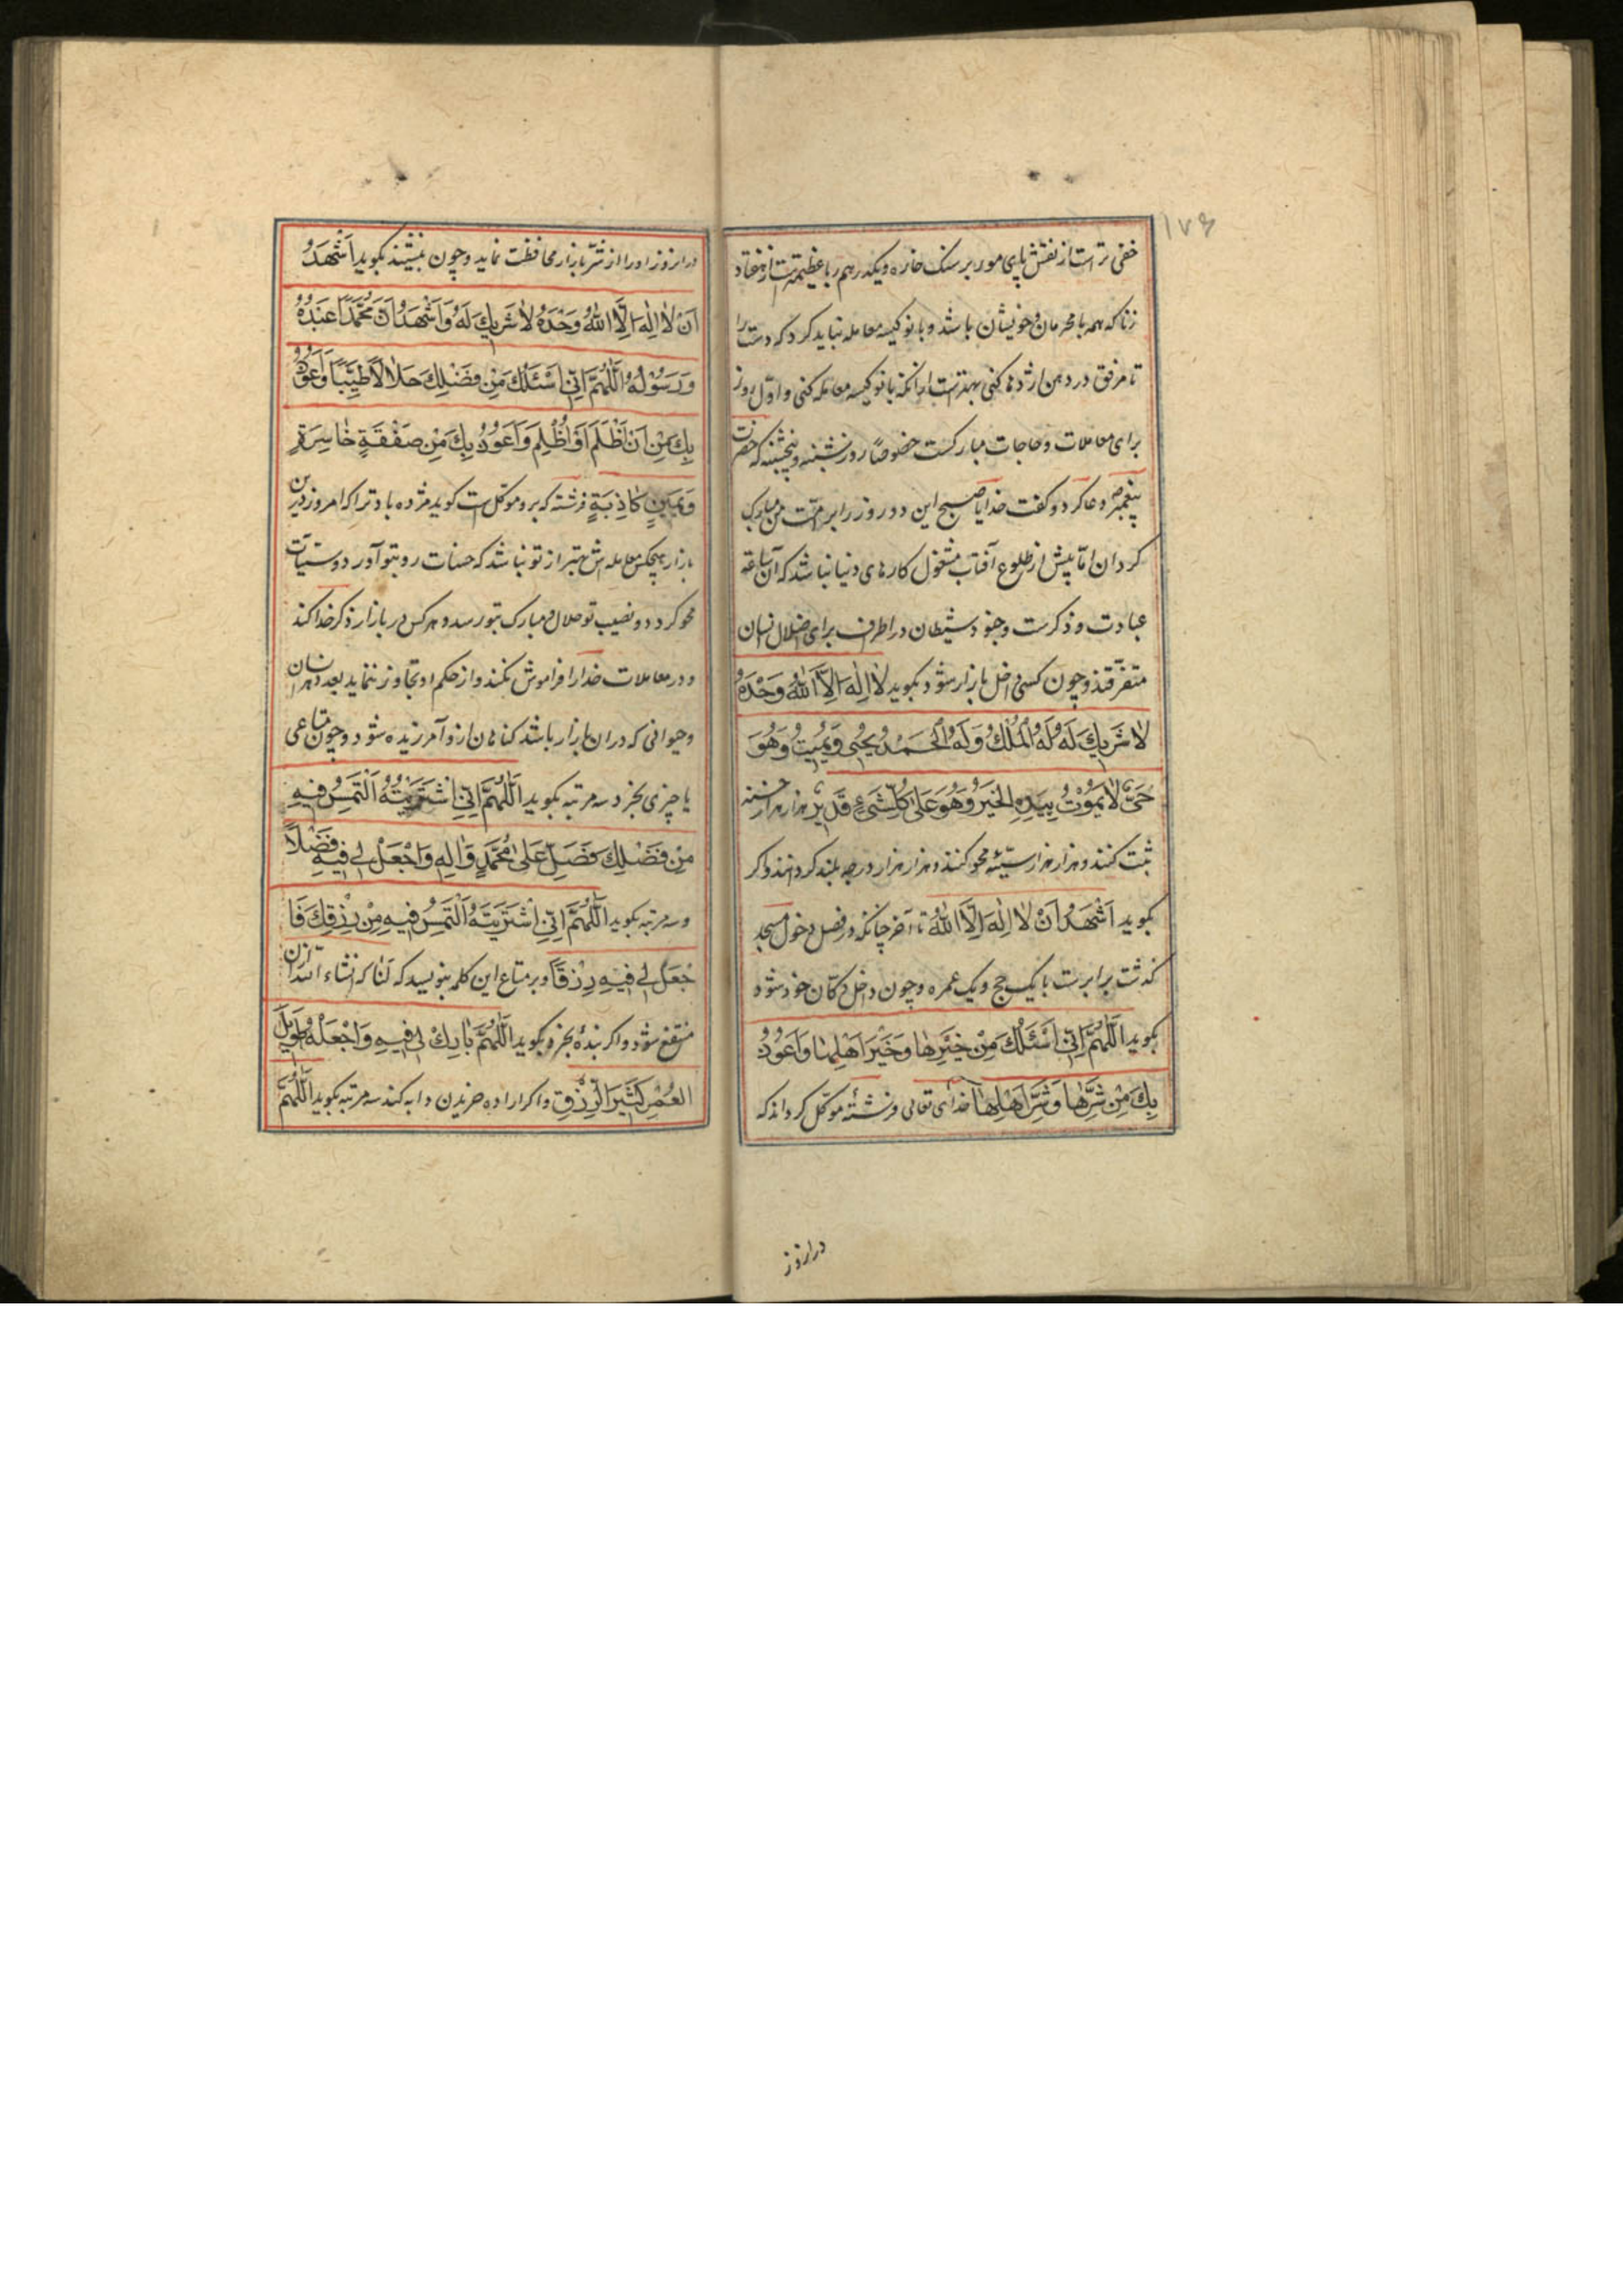 ۱۷۶
خفی تراست از نقش پای مور بر سنک خاره و یکدرهم ربا عظیمتر است از هفتاد
زنا که همه با محرمان و خویشان باشد و با نوکیسه معامله نباید کرد که دست را
تا مرفق در دهن اژدها کنی بهتر است از انکه با نوکیسه معامله کنی و اوّل روز
برای معاملات و حاجات مبارکست خصوصًا روز شنبه و پنجشنبه که حضرت
پیغمبر دعا کرد و کفت خدایا صبح این دو روز را بر امّت من مبارک
کردان امّا پیش از طلوع آفتاب مشغول کارهای دنیا نباشد که آن ساعة
عبادت و ذکرست و جنود شیطان در اطراف برای اضلال انسان
متفرّقند و چون کسی داخل بازار شود بکوید لٰا اِلٰهَ اِلَّا اللّٰهُ وَحْدَهُ
لٰا شَرٖیكَ لَهُ لَهُ الْمُلْكُ وَلَهُ الْحَمْدُ یُحْیٖی وَیُمٖیتُ وَهُوَ
حَیٌّ لٰا یَمُوْتُ بِیَدِهِ الْخَیْرُ وَهُوَ عَلٰی كُلِّ شَیْءٍ قَدٖیرٌ هزار هزار حسنه
ثبت کنند و هزار هزار سیّئه محو کنند و هزار هزار درجه بلند کردانند و اکر
بکوید اَشْهَدُ اَنْ لٰا اِلٰهَ اِلَّا اللّٰهُ تا آخر چنانکه در فصل دخول مسجد
کذشت برابرست با یک حج و یک عمره و چون داخل دکان خود شود
بکوید اَللّٰهُمَّ اِنّٖی اَسْئَلُكَ مِنْ خَیْرِهٰا وَخَیْرِ اَهْلِهٰا وَاَعُوْذُ
بِكَ مِنْ شَرِّهٰا وَشَرِّ اَهْلِهٰا خدای تعالی فرشتهٔ موکّل کرداند که
در انروز
در انروز او را از شرّ بازار محافظت نماید و چون بنشیند بکوید اَشْهَدُ
اَنْ لٰا اِلٰهَ اِلَّا اللّٰهُ وَحْدَهُ لٰا شَرٖیكَ لَهُ وَاَشْهَدُ اَنَّ مُحَمَّدًا عَبْدُهُ
وَرَسُوْلُهُ اَللّٰهُمَّ اِنّٖی اَسْئَلُكَ مِنْ فَضْلِكَ حَلٰالًا طَیِّبًا وَاَعُوْذُ
بِكَ مِنْ اَنْ اَظْلِمَ اَوْ اُظْلَمَ وَاَعُوْذُ بِكَ مِنْ صَفْقَةٍ خٰاسِرَةٍ
وَیَمٖینٍ كٰاذِبَةٍ فرشته که برو موکّل ست کوید مژده باد ترا که امروز درین
بازار هیچکس معامله‌اش بهتر از تو نباشد که حسنات رو بتو آورد و سیّئات
محو کردد و نصیب تو حلال و مبارک بتو رسد و هرکس در بازار ذکر خدا کند
و در معاملات خدا را فراموش نکند و از حکم او تجاوز ننماید بعدد هر انسان
و حیوانی که در ان بازار باشد کناهان ازو آمرزیده شود و چون متاعی
یا چیزی بخرد سه مرتبه بکوید اَللّٰهُمَّ اِنّٖی اشْتَرَیْتُهُ اَلْتَمِسُ فٖیهِ
مِنْ فَضْلِكَ فَصَلِّ عَلٰی مُحَمَّدٍ وَاٰلِهِ وَاجْعَلْ لٖی فٖیهِ فَضْلًا
و سه مرتبه بکوید اَللّٰهُمَّ اِنّٖی اشْتَرَیْتُهُ اَلْتَمِسُ فٖیهِ مِنْ رِزْقِكَ فَا
جْعَلْ لٖی فٖیهِ رِزْقًا و بر متاع این کلمه بنویسد که لَنٰا که انشاء اللّه ازان
منتفع شود و اکر بندهٔ بخرد بکوید اَللّٰهُمَّ بٰارِكْ لٖی فٖیهِ وَاجْعَلْهُ طَوٖیلَ
الْعُمُرِ كَثٖیرَ الرِّزْقِ و اکر اراده خریدن دابه کند سه مرتبه بکوید اَللّٰهُمَّ